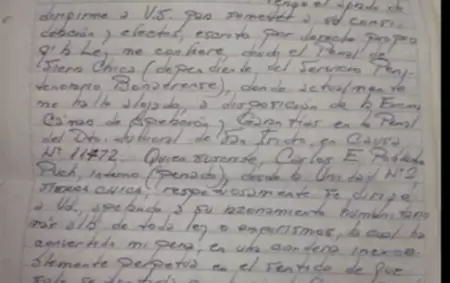 tengo el agrado de
dirigirme a V.S. para someter a su consi-
deración y efectos, escrito por derecho propio
q' la Ley me confiere, desde el Penal de
Sierra Chica (dependiente del Servicio Peni-
tenciario Bonaerense), donde actualmente
me hallo alojado, a disposición de la Excma.
Cámara de Apelación y Garantías en lo Penal
del Dto. Judicial de San Isidro, en Causa
Nº 11472. Quien suscribe, Carlos E. Robledo
Puch, interno (penado), desde la Unidad Nº 2,
SIERRA CHICA, respetuosamente se dirige
a Ud., apelando a su razonamiento humanitario
más allá de toda ley o empirismos, lo cual ha
convertido mi pena, en una condena inexora-
blemente perpetua en el sentido de que